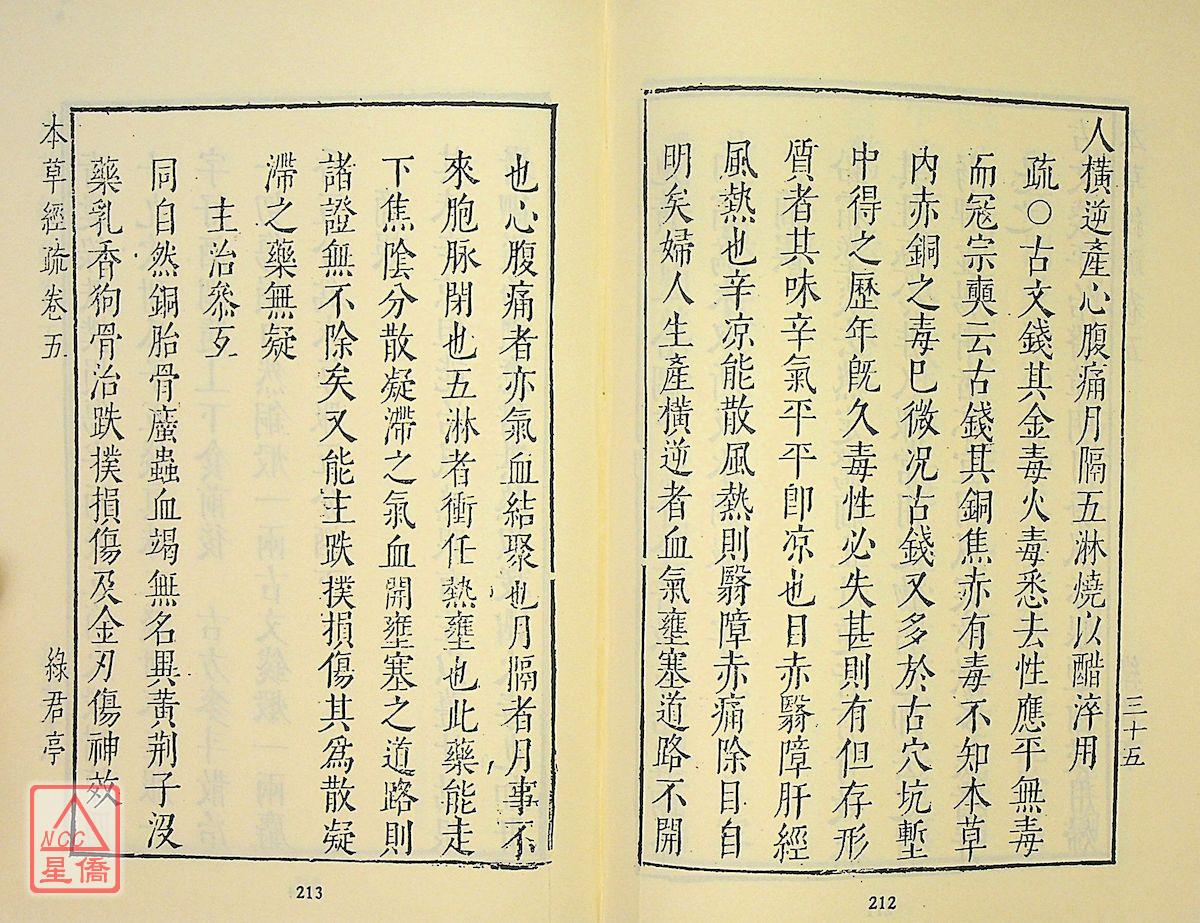 人橫逆產心腹痛月隔五淋燒以醋淬用
疏○古文錢其金毒火毒悉去性應平無毒
而冦宗奭云古錢其銅焦赤有毒不知本草
內赤銅之毒巳微况古錢又多於古穴坑塹
中得之歷年旣久毒性必失甚則有但存形
質者其味辛氣平平卽凉也目赤翳障肝經
風熱也辛凉能散風熱則翳障赤痛除目自
明矣婦人生產橫逆者血氣壅塞道路不開
三十五
212
也心腹痛者亦氣血結聚也月隔者月事不
來胞脉閉也五淋者衝任熱壅也此藥能走
下焦陰分散凝滯之氣血開壅塞之道路則
諸證無不除矣又能主跌撲損傷其爲散凝
滯之藥無凝
主治叅互
同自然銅胎骨䗪蟲血竭無名異黃荆子没
藥乳香狗骨治跌撲損傷及金刃傷神效
本草經疏卷五
綠君亭
213
NCC
星僑